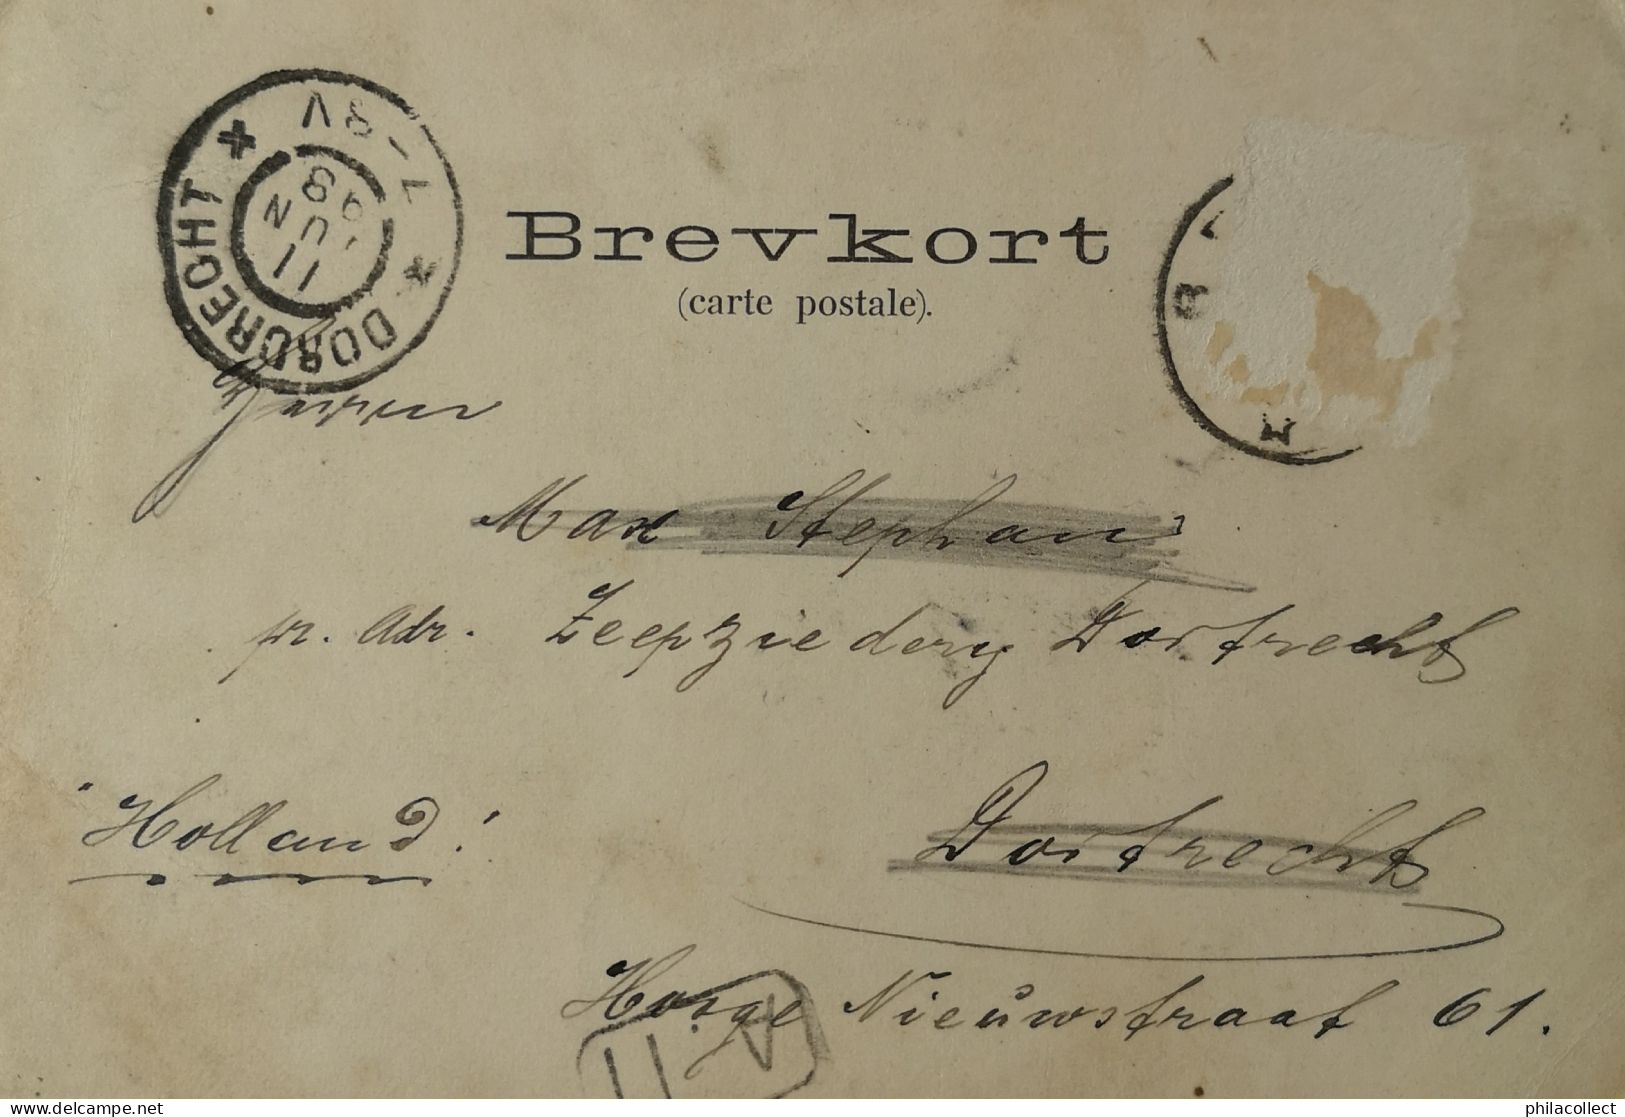 Brevkort
(carte postale).
* DORDRECHT *
7-8V
11
JUN
98
B
M
Herrn
Max Stephan
pr. Adr. Zeepziedery Dortrecht
"Holland!
Dortrecht
Hooge Nieuwstraat 61.
A.II
philacollect www.delcampe.net